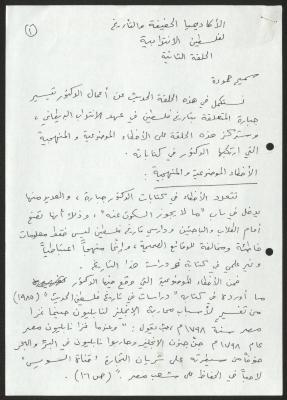 ①
الأكاديميا الحقيقة والتاريخ
لفلسطين الانتدابية
الحلقة الثانية
سميح حمودة
نستكمل في هذه الحلقة الحديث عن أعمال الدكتور تيسير
جبارة المتعلقة بتاريخ فلسطين في عهد الانتداب البريطاني،
وستركز هذه الحلقة على الأخطاء الموضوعية والمنهجية
التي ارتكبها الدكتور في كتاباته.
الأخطاء الموضوعية والمنهجية:
تتعدد الأخطاء في كتابات الدكتور جبارة، والعديد منها
يدخل في باب "ما لا يجوز السكوت عنه"، وذلك أنها تضع
أمام الطلاب والباحثين ودارسي تاريخ فلسطين ليس فقط معلومات
خاطئة ومخالفة للوقائع الصحيحة، وإنما منهجاً اعتباطياً
وغير علمي في كتابة ودراسة هذا التاريخ.
فمن الأخطاء الموضوعية التي وقع فيها الدكتور
ما أورده في كتابه "دراسات في تاريخ فلسطين الحديث" (١٩٨٥)
من تفسير لأسباب محاربة الإنجليز لنابليون حينما غزا
مصر سنة ١٧٩٨م، حيث يقول: "وعندما غزا نابليون مصر
عام ١٧٩٨م جن جنون الإنجليز وحاربوا نابليون في البر والبحر
خوفاً من سيطرته على شريان التجارة "قناة السويس"
لا حباً في الحفاظ على شعب مصر." (ص ١٦).